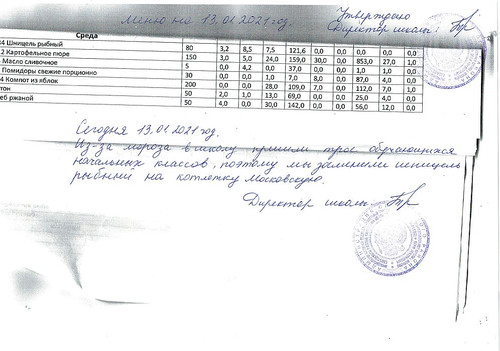 Меню на 13.01.2021 год.
Утверждено
Директор школы:
Среда
34 Шницель рыбный 80 3,2 8,5 7,5 121,6 0,0 0,0 0,0 0,0
2 Картофельное пюре 150 3,0 5,0 24,0 159,0 30,0 0,0 853,0 27,0 1,0
Масло сливочное 5 0,0 4,2 0,0 37,0 0,0 0,0 1,0 1,0 0,0
Помидоры свежие порционно 30 0,0 0,0 1,0 7,0 8,0 0,0 87,0 4,0 0,0
4 Компот из яблок 200 0,0 0,0 28,0 109,0 7,0 0,0 112,0 7,0 1,0
тон 50 2,0 1,0 13,0 69,0 0,0 0,0 25,0 4,0 0,0
еб ржаной 50 4,0 0,0 30,0 142,0 0,0 0,0 56,0 12,0 0,0
Сегодня 13.01.2021 год.
Из-за мороза в школу пришли трое обучающихся
начальных классов, поэтому мы заменили шницель
рыбный на котлетку Московскую.
Директор школы: